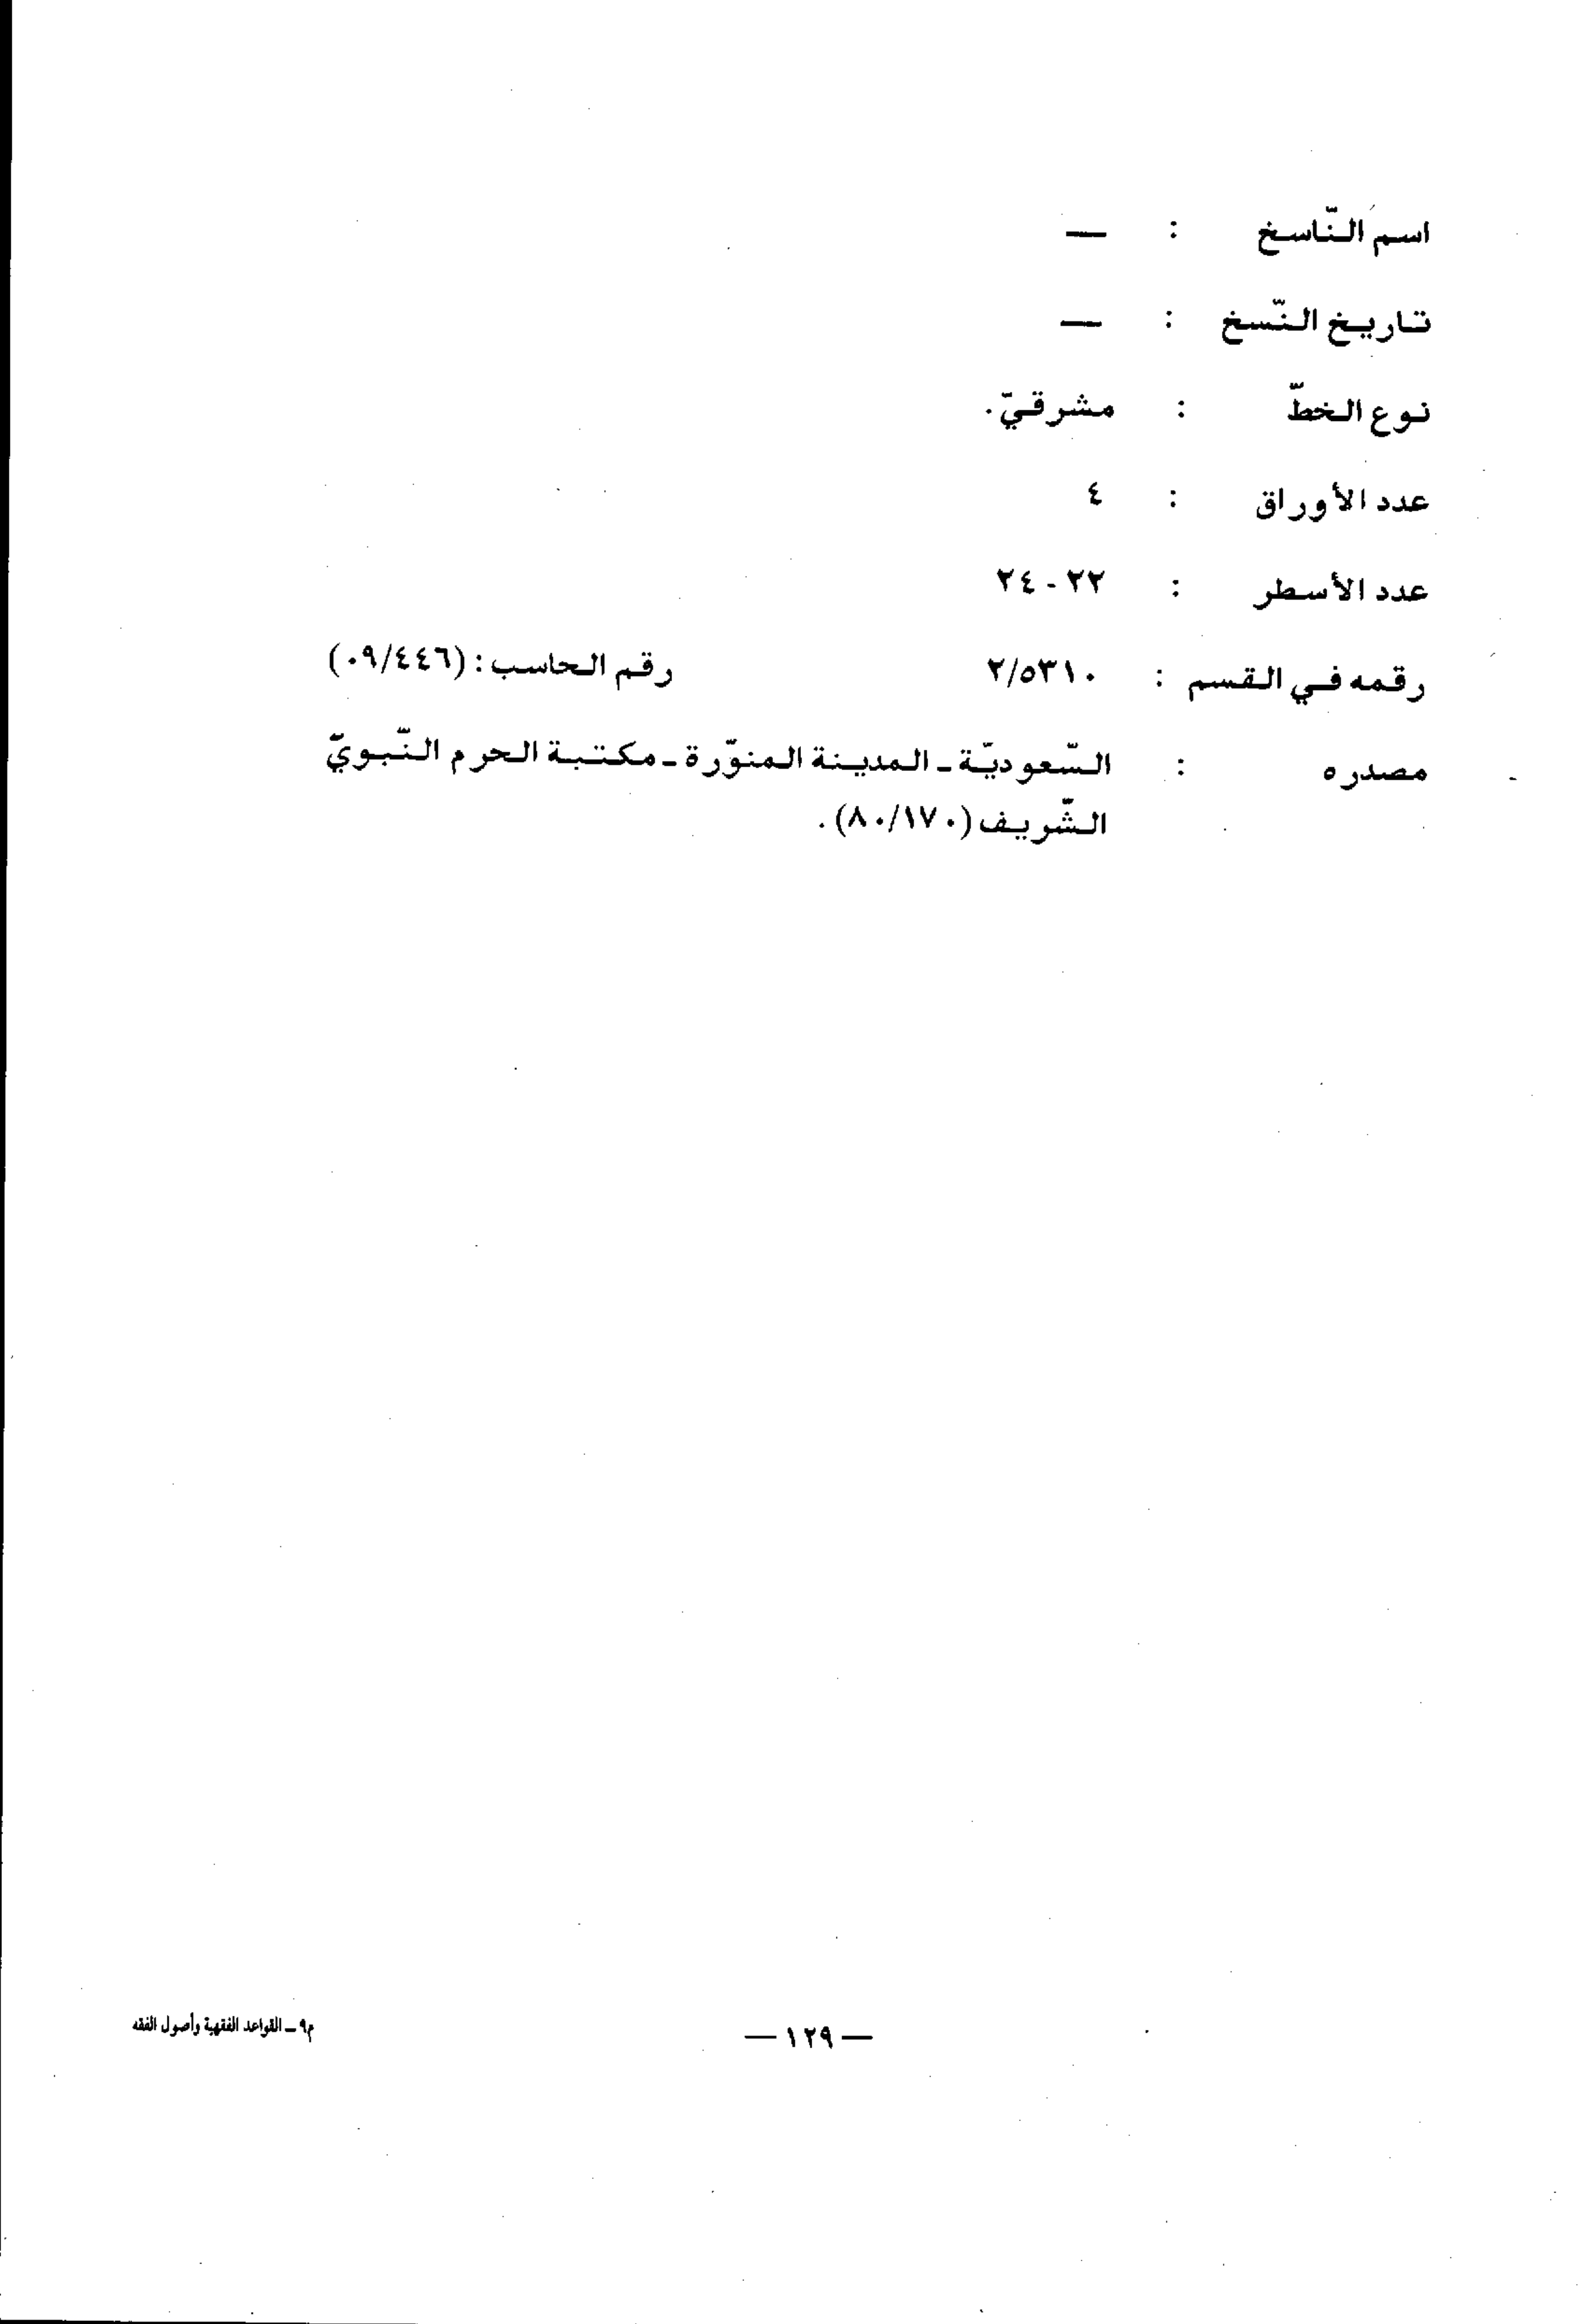 اسم النّاسخ : —
تاريخ النّسخ : —
نوع الخطّ : مشرقيّ.
عدد الأوراق : ٤
عدد الأسطر : ٢٢ - ٢٤
رقمه في القسم : ٢/٥٣١٠ رقم الحاسب: (٠٩/٤٤٦)
مصدره : السّعوديّة - المدينة المنوّرة - مكتبة الحرم النّبويّ
الشّريف (٨٠/١٧٠).
— ١٢٩ —
م٩ - القواعد الفقهية وأصول الفقه